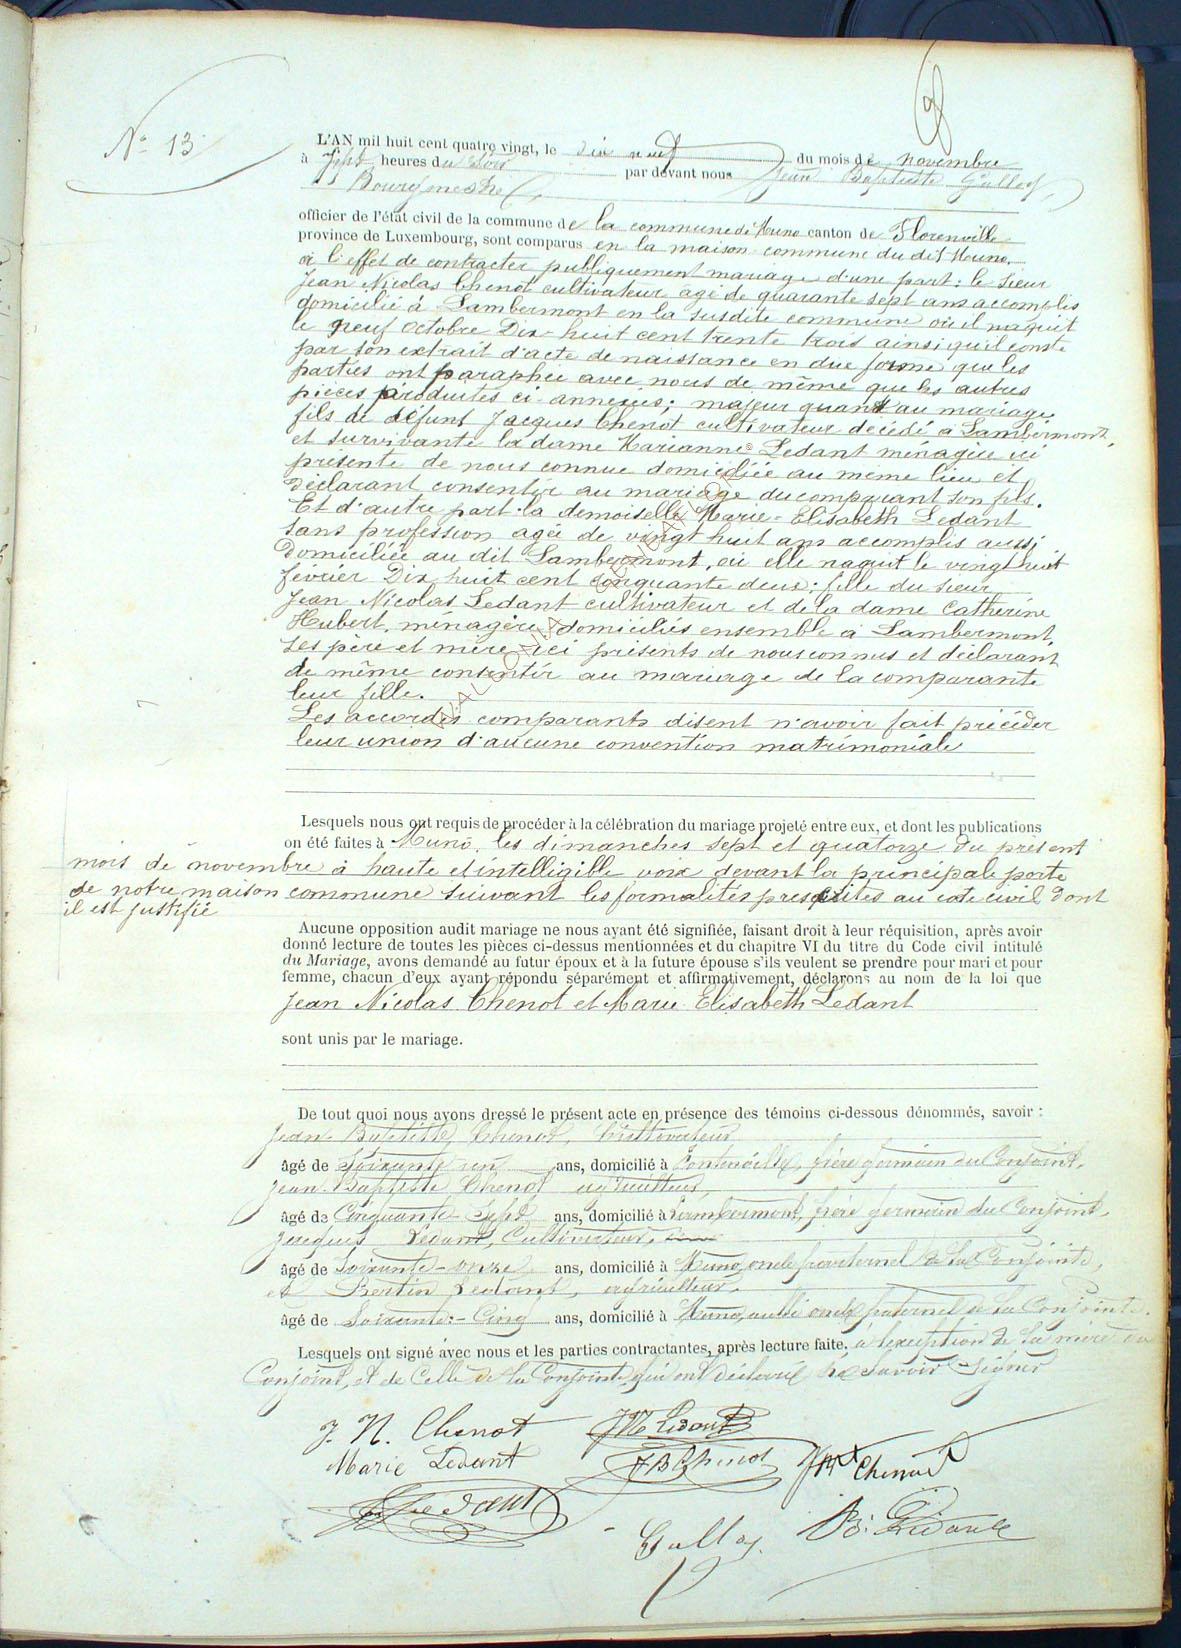 N° 13
L'AN mil huit cent quatre vingt, le dix neuf du mois de novembre
à sept heures du soir par devant nous Jean Baptiste Gullay,
Bourgmestre
officier de l'état civil de la commune de la commune de Muno canton de Florenville
province de Luxembourg, sont comparus en la maison commune du dit Muno,
à l'effet de contracter publiquement mariage d'une part : le sieur
Jean Nicolas Chenot cultivateur âgé de quarante sept ans accomplis
domicilié à Lambermont en la susdite commune où il naquit
le neuf octobre Dix-huit cent trente trois ainsi qu'il conste
par son extrait d'acte de naissance en due forme que les
parties ont paraphée avec nous de même que les autres
pièces produites ci-annexées ; majeur quant au mariage
fils de défunt Jacques Chenot cultivateur décédé à Lambermont,
et survivante la dame Marianne Ledant ménagère ici
présente de nous connue domiciliée au même lieu et
déclarant consentir au mariage du comparant son fils.
Et d'autre part la demoiselle Marie-Elisabeth Ledant
sans profession agée de vingt huit ans accomplis aussi
domiciliée au dit Lambermont, où elle naquit le vingt huit
février Dix huit cent cinquante deux ; fille du sieur
Jean Nicolas Ledant cultivateur et de la dame Catherine
Hubert, ménagère domiciliés ensemble à Lambermont,
Les père et mère ici présents de nous connus et déclarant
de même consentir au mariage de la comparante
leur fille.
Les accordés comparants disent n'avoir fait précéder
leur union d'aucune convention matrimoniale
Lesquels nous ont requis de procéder à la célébration du mariage projeté entre eux, et dont les publications
on été faites à Muno, les dimanches sept et quatorze du présent
mois de novembre à haute et intelligible voix devant la principale porte
de notre maison commune suivant les formalités prescrites au code civil dont
il est justifié
Aucune opposition audit mariage ne nous ayant été signifiée, faisant droit à leur réquisition, après avoir
donné lecture de toutes les pièces ci-dessus mentionnées et du chapitre VI du titre du Code civil intitulé
du Mariage, avons demandé au futur époux et à la future épouse s'ils veulent se prendre pour mari et pour
femme, chacun d'eux ayant répondu séparément et affirmativement, déclarons au nom de la loi que
Jean Nicolas Chenot et Marie Elisabeth Ledant
sont unis par le mariage.
De tout quoi nous avons dressé le présent acte en présence des témoins ci-dessous dénommés, savoir :
Jean Baptiste Chenot, Cultivateur
âgé de Soixante un ans, domicilié à Fontenoille, frère germain du Conjoint,
Jean-Baptiste Chenot agriculteur,
âgé de Cinquante-Sept ans, domicilié à Lambermont, frère germain du Conjoint,
Jacques Ledant, Cultivateur,
âgé de Soixante-onze ans, domicilié à Muno, oncle paternel de la Conjointe,
et Bertin Ledant, agriculteur,
âgé de Soixante-Cinq ans, domicilié à Muno, aussi oncle paternel de la Conjointe.
Lesquels ont signé avec nous et les parties contractantes, après lecture faite, à l'exception de la mère du
Conjoint, et de Celle de la Conjointe qui ont déclaré ne savoir Signer
J. N. Chenot JN Ledant
Marie Ledant JB Chenot JBt Chenot
J. Ledant
Gullay. B. Ledant